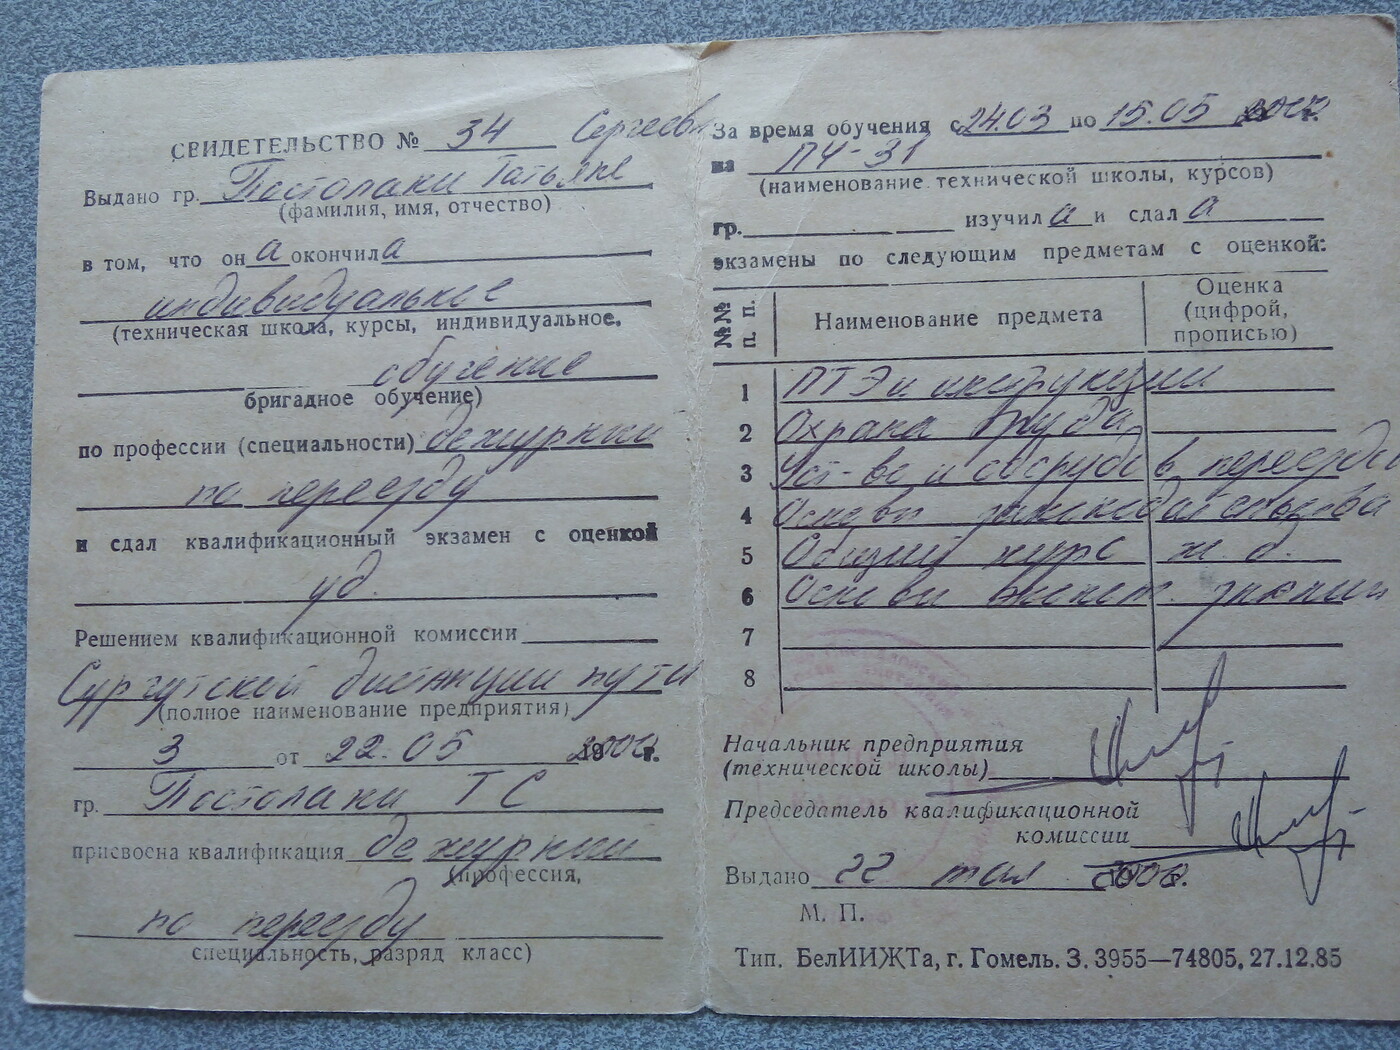 СВИДЕТЕЛЬСТВО № 34 Сергеев
Выдано гр. Постолаки Татьяне
(фамилия, имя, отчество)
в том, что он а окончил а
индивидуальное
(техническая школа, курсы, индивидуальное,
обучение
бригадное обучение)
по профессии (специальности) дежурный
по переезду
и сдал квалификационный экзамен с оценкой
уд.
Решением квалификационной комиссии
Сургутской дистанции пути
(полное наименование предприятия)
3 от 22.05 г.
гр. Постолаки Т С
присвоена квалификация дежурный
(профессия,
по переезду
специальность, разряд класс)
За время обучения с 24.03 по 15.05 г.
на ПЧ-31
(наименование технической школы, курсов)
гр. изучил а и сдал а
экзамены по следующим предметам с оценкой:
№№ п. п. Наименование предмета Оценка (цифрой, прописью)
1 ПТЭ и инструкции
2 Охрана труда
3 Уст-во и оборуд в переезда
4 Основы законодательства
5 Общий курс ж. д.
6 Основы знаний
7
8
Начальник предприятия
(технической школы)
Председатель квалификационной
комиссии
Выдано 22 мая г.
М. П.
Тип. БелИИЖТа, г. Гомель. З. 3955—74805, 27.12.85